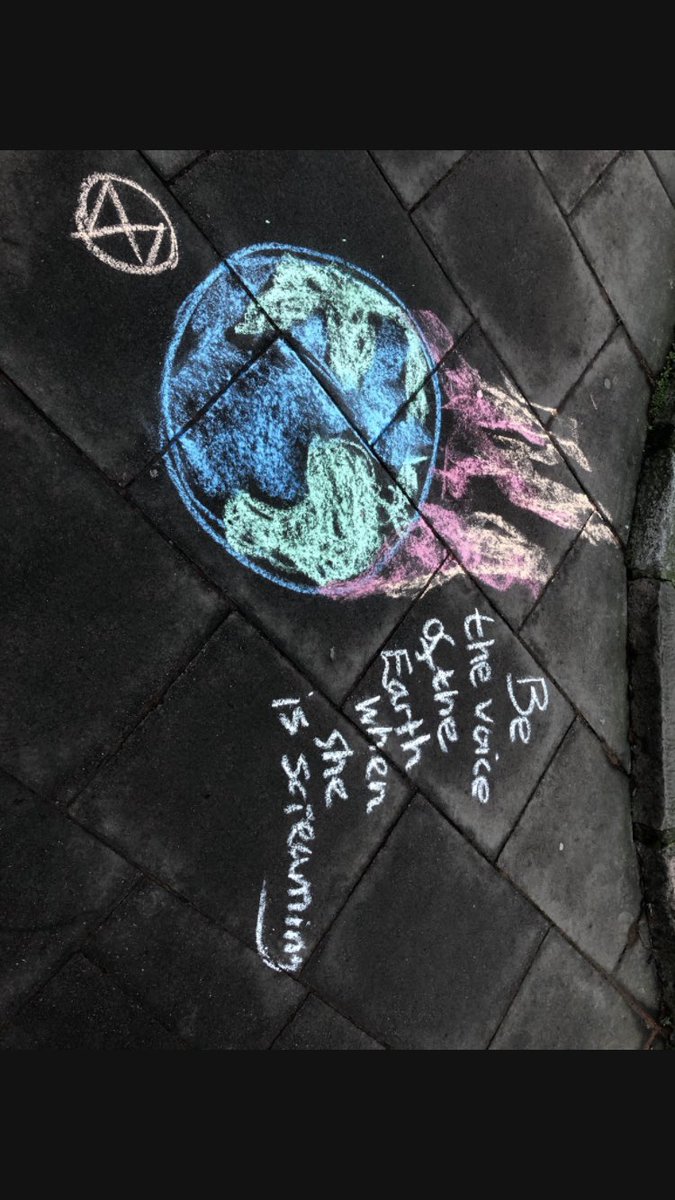 Be
the voice
of the
Earth
when
she
is screaming